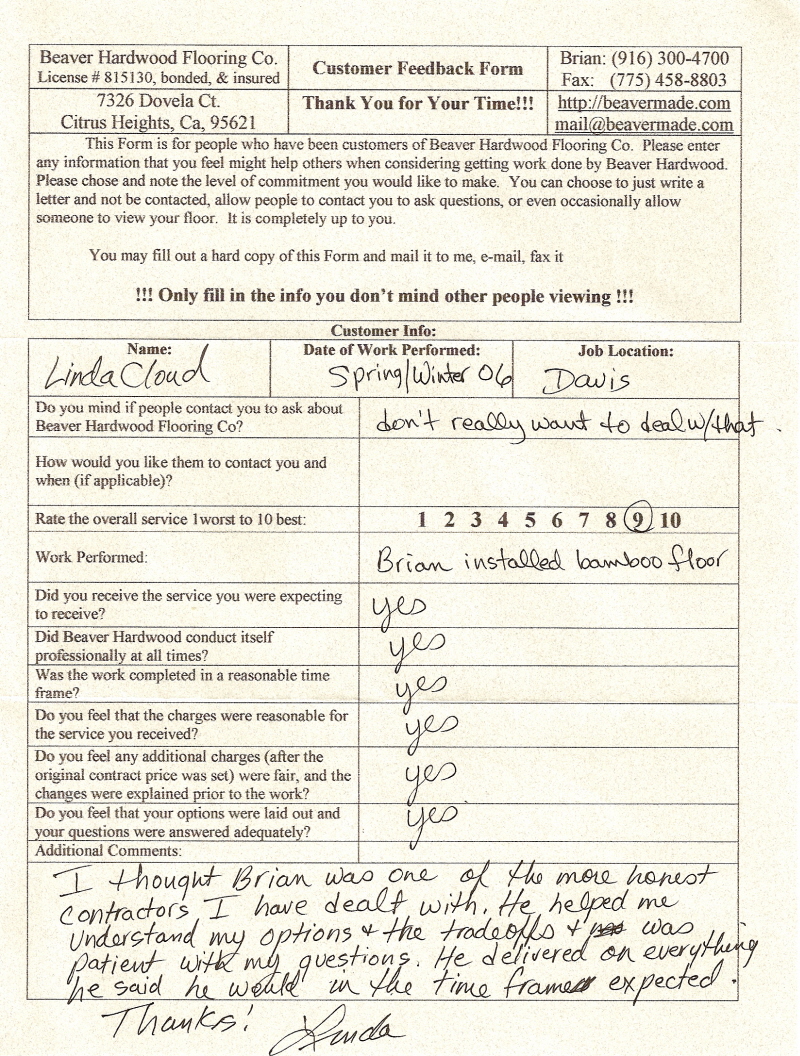 Beaver Hardwood Flooring Co.
License # 815130, bonded, & insured
Customer Feedback Form
Brian: (916) 300-4700
Fax: (775) 458-8803
7326 Dovela Ct.
Citrus Heights, Ca, 95621
Thank You for Your Time!!!
http://beavermade.com
mail@beavermade.com
This Form is for people who have been customers of Beaver Hardwood Flooring Co. Please enter
any information that you feel might help others when considering getting work done by Beaver Hardwood.
Please chose and note the level of commitment you would like to make. You can choose to just write a
letter and not be contacted, allow people to contact you to ask questions, or even occasionally allow
someone to view your floor. It is completely up to you.
You may fill out a hard copy of this Form and mail it to me, e-mail, fax it
!!! Only fill in the info you don't mind other people viewing !!!
Customer Info:
Name:
Linda Cloud
Date of Work Performed:
Spring/Winter 06
Job Location:
Davis
Do you mind if people contact you to ask about
Beaver Hardwood Flooring Co?
don't really want to deal w/that.
How would you like them to contact you and
when (if applicable)?
Rate the overall service 1worst to 10 best:
1 2 3 4 5 6 7 8 9 10
Work Performed:
Brian installed bamboo floor
Did you receive the service you were expecting
to receive?
yes
Did Beaver Hardwood conduct itself
professionally at all times?
yes
Was the work completed in a reasonable time
frame?
yes
Do you feel that the charges were reasonable for
the service you received?
yes
Do you feel any additional charges (after the
original contract price was set) were fair, and the
changes were explained prior to the work?
yes
Do you feel that your options were laid out and
your questions were answered adequately?
yes
Additional Comments:
I thought Brian was one of the more honest
contractors I have dealt with. He helped me
understand my options & the tradeoffs & was
patient with my questions. He delivered on everything
he said he would in the time frame expected.
Thanks! Linda